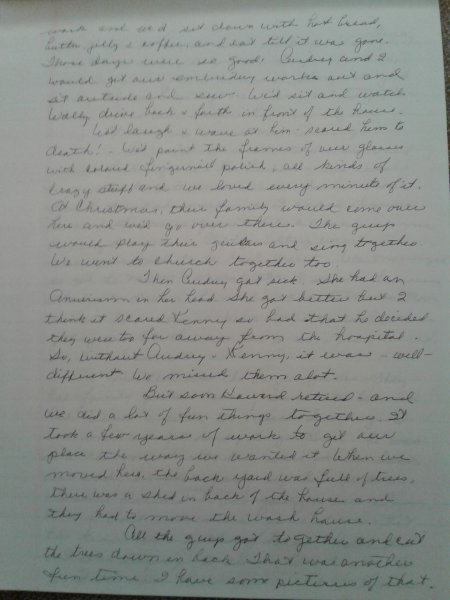 work and we'd sit down with hot bread,
butter jelly & coffee, and eat till it was gone.
Those days were so good. Audrey and I
would get our embroidery works out and
sit outside and sew. We'd sit and watch
Wally drive back & forth in front of the house.
We'd laugh & wave at him - scared him to
death! - We'd paint the frames of our glasses
with colored fingernail polish, all kinds of
crazy stuff and we loved every minute of it.
At Christmas, their family would come over
here and we'd go over there. The guys
would play their guitars and sing together.
We went to church together too.
Then Audrey got sick. She had an
Anurism in her head. She got better but I
think it scared Kenny so bad that he decided
they were too far away from the hospital.
So, without Audrey & Kenny, it was - well-
different. We missed them alot.
But soon Howard retired - and
we did a lot of fun things together. It
took a few years of work to get our
place the way we wanted it. When we
moved here, the back yard was full of trees,
there was a shed in back of the house and
they had to move the wash house.
All the guys got together and cut
the trees down in back. That was another
fun time. I have some pictures of that.